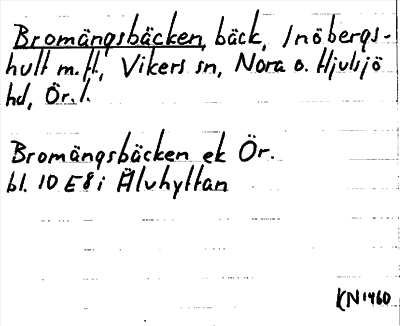 Bromängsbäcken, bäck, Inöbergs-
hult m.fl., Vikers sn, Nora o. Hjulsjö
hd, Ör. l.
Bromängsbäcken ek Ör.
bl. 10 E8i Älvhyttan
KN 1960